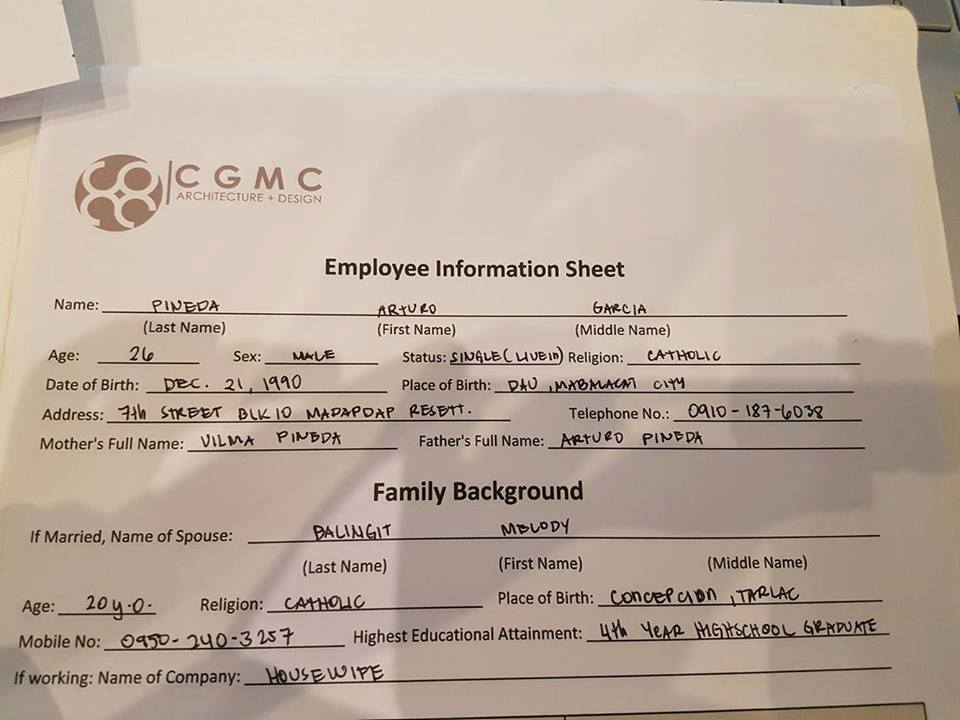 CGMC
ARCHITECTURE + DESIGN
Employee Information Sheet
Name: PINEDA ARTURO GARCIA
(Last Name) (First Name) (Middle Name)
Age: 26 Sex: MALE Status: SINGLE (LIVE IN) Religion: CATHOLIC
Date of Birth: DEC. 21, 1990 Place of Birth: DAU, MABALACAT CITY
Address: 7th STREET BLK 10 MADAPDAP RESETT. Telephone No.: 0910-187-6038
Mother's Full Name: VILMA PINEDA Father's Full Name: ARTURO PINEDA
Family Background
If Married, Name of Spouse: BALINGIT MELODY
(Last Name) (First Name) (Middle Name)
Age: 20 y.o. Religion: CATHOLIC Place of Birth: CONCEPCION, TARLAC
Mobile No: 0950-240-3257 Highest Educational Attainment: 4th YEAR HIGHSCHOOL GRADUATE
If working: Name of Company: HOUSEWIFE